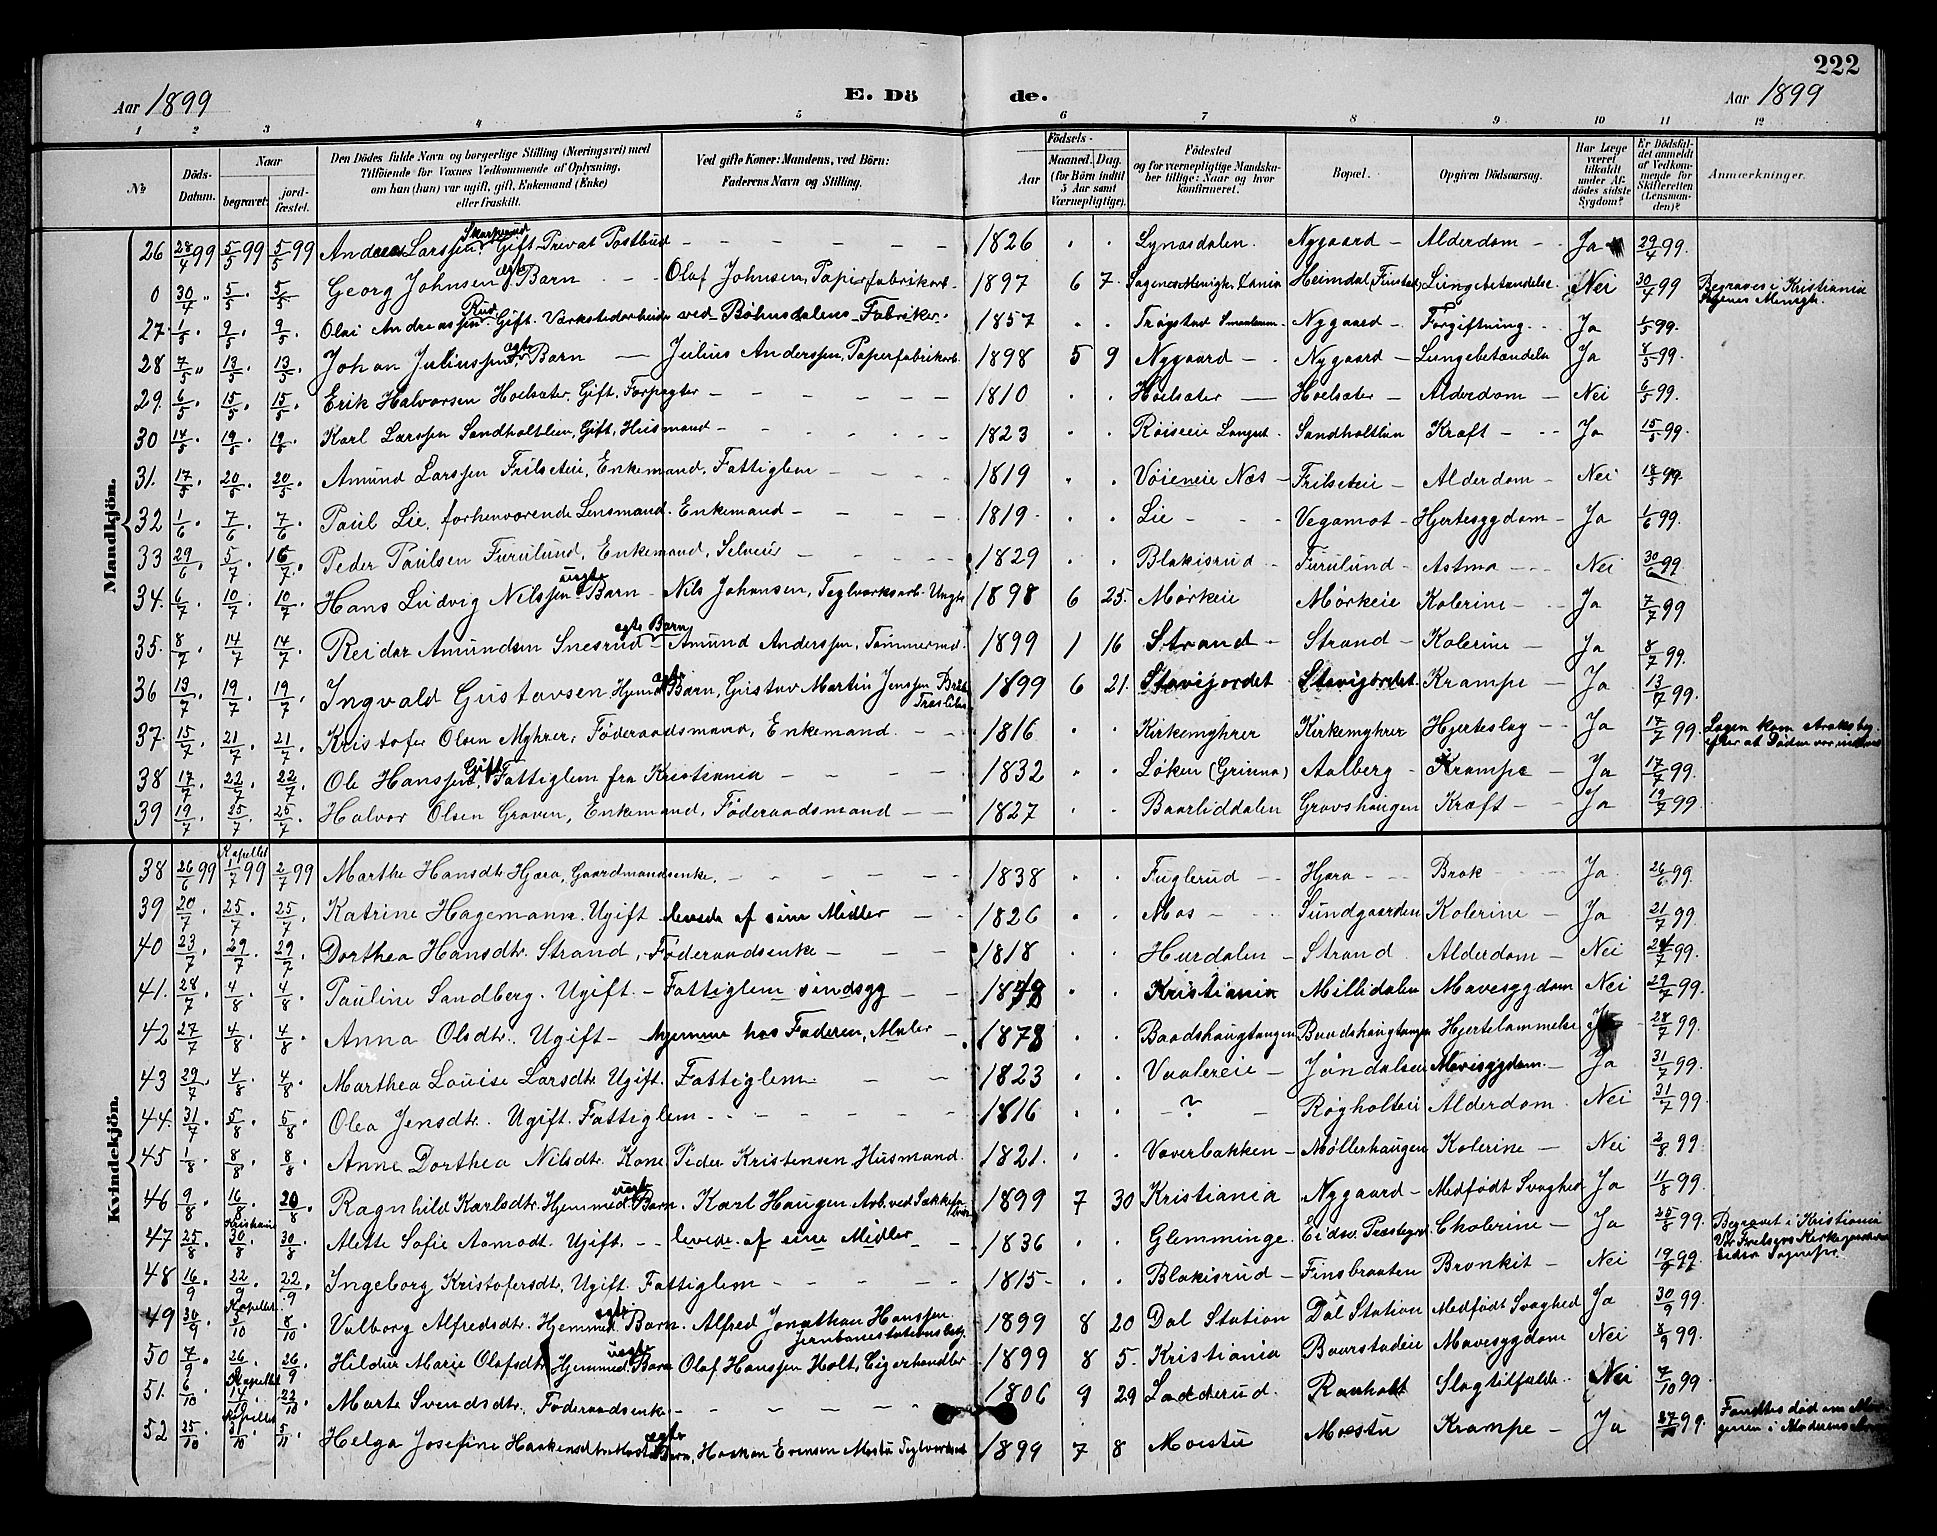 222
Aar 1899 E. Dö de. Aar 1899
1 2 3 4 5 6 7 8 9 10 11 12
№
Döds-Datum.
Naar
begravet.
jordfæstet.
Den Dödes fulde Navn og borgerlige Stilling (Næringsvei) med Tilföiende for Voxnes Vedkommende af Oplysning, om han (hun) var ugift, gift, Enkemand (Enke) eller fraskilt.
Ved gifte Koner: Mandens, ved Börn: Faderens Navn og Stilling.
Födsels-
Aar
Maaned. Dag.
(for Börn indtil 5 Aar samt Værnepligtige).
Födested og for værnepligtige Mandskaber tillige: Naar og hvor konfirmeret.
Bopæl.
Opgiven Dödsaarsag.
Har Læge været tilkaldt under Afdödes sidste Sygdom?
Er Dödsfaldet anmeldt af Vedkommende for Skifteretten (Lensmanden)?
Anmærkninger.
Mandkjön.
26 28/4 99 5/5 99 5/5 99 Andreas Larssen Skarpsnud Gift Privat Postbud – – – 1826 Lynasdalen. Nygaard – Alderdom – Ja 29/4 99.
0 30/4 " 5/5 5/5 Georg Johnsen ægte Barn – Olaf Johnsen, Papirfabrikarb. 1897 6 7 Sagenes Menigh. Kania Heimdal, Finstad, Lungebetændelse. Nei 30/4 99 Begraves i Kristiania Sagenes Menigh.
27. 1/5 9/5 9/5 Olai Andreassen Rud Gift. Værkstedarbeider ved Böhnsdalens Fabriker. 1857 Trøgstad Smaalenene – Nygaard – Forgiftning Ja 1/5 99.
28 7/5 13/5 13/5 Johan Juliussen ægte Barn – Julius Anderssen, Papirfabrikarb. 1898 5 9 Nygaard – Nygaard – Lungebetændelse Ja 8/5 99.
29. 6/5 15/5 15/5 Erik Halvorsen Hoelsæter. Gift, Forpagter – – 1810 Hoelsæter – Hoelsæter – Alderdom – Nei 6/5 99.
30 14/5 19/5 19/5 Karl Larssen Sandholtlien, Gift, Husmand – – 1823 Røiseie Langset. Sandholtlien Kræft – Ja 15/5 99.
31. 17/5 20/5 20/5 Amund Larssen Frilseteie, Enkemand, Fattiglem – – 1819 Vøieneie Næs – Frilseteie – Alderdom – Nei 18/5 99.
32 1/6 7/6 7/6 Paul Lie, forhenværende Lensmand. Enkemand – – 1819. Lie – Vegamot – Hjertesygdom – Ja 1/6 99.
33 29/6 5/7 16/7 Peder Paulsen Furulund, Enkemand, Selveier – – 1829 Blakisrud – Furulund – Astma – Nei 30/6 99
34. 6/7 10/7 10/7 Hans Ludvig Nilssen uægte Barn – Nils Johansen, Teglværksarb. Ungk. 1898 6 25. Mørkeie Mørkeie Kolerine – Ja 7/7 99
35. 8/7 14/7 14/7 Reidar Amundsen Snesrud ægte Barn – Amund Anderssen, Tømmermd. 1899 1 16 Strand – Strand – Kolerine – Ja 8/7 99.
36 13/7 19/7 19/7 Ingvald Gustavsen Hjemd. ægte Barn, Gustav Martin Jenssen 1899 6 21. Stavijordet Stavijordet. Krampe – Ja 13/7 99.
37. 15/7 21/7 21/7 Kristofer Olsen Myhrer, Føderaadsmand, Enkemand. – – 1816 Kirkemyhrer Kirkemyhrer Hjerteslag – Ja 17/7 99. Lægen kom straks efter at Døden var indtraadt
38 17/7 22/7 22/7 Ole Hanssen, Gift Fattiglem fra Kristiania – – 1832 Løken (Grinna) Aalberg – Krampe – Ja 17/7 99.
39 19/7 25/7 25/7 Halvor Olsen Graven, Enkemand, Føderaadsmand – – 1827 Baarliddalen Gravshaugen Kræft – Ja 19/7 99
Kvindekjön.
38 26/6 99 Kapellet 1/7 99 2/7 99 Marthe Hansdtr Hjæra, Gaardmandsenke. – – 1838 Fuglerud – Hjæra – Brok Ja. 26/6 99.
39 20/7 25/7 25/7 Katrine Hagemann. Ugift levede af sine Midler – 1826 Mos – Sundgaarden Kolerine – Ja 21/7 99.
40 23/7 29/7 29/7 Dorthea Hansdtr. Strand, Føderaadsenke – – 1818 Hurdalen – Strand. Alderdom – Nei 24/7 99.
41. 28/7 4/8 4/8 Pauline Sandberg. Ugift. – Fattiglem sindsyg – 1848 Kristiania Millidalen Mavesygdom Nei 29/7 99.
42 27/7 4/8 4/8 Anna Olsdtr. Ugift – hjemme hos Faderen, Maler – 1878 Baadshaugtangen Baadshaugtangen Hjertelammelse Ja 28/7 99.
43 29/7 4/8 4/8 Marthea Louise Larsdtr. Ugift. Fattiglem – 1823 Vaalereie – Jøndalseie Mavesygdom. – Ja 31/7 99.
44. 31/7 5/8 5/8 Olea Jensdtr. Ugift. Fattiglem – – 1816 – ? – Røgholteie Alderdom. Nei 31/7 99.
45 1/8 8/8 8/8 Anne Dorthea Nilsdtr. Kone Peder Kristensen Husmand. 1821. Væverbakken – Møllerhaugen Kolerine – Nei 2/8 99.
46 9/8 16/8 20/8 Ragnhild Karlsdtr. Hjemmed. uægte Barn. Karl Haugen Arb. ved 1899 7 30 Kristiania Nygaard – Medfødt Svaghed Ja 11/8 99.
47 25/8 Kristiania 30/8 30/8 Alette Sofie Aamodt. Ugift. – – levede af sine Midler – 1836 Glemminge. Eidsv. Præstegrd. Cholerine – Ja 25/8 99. Begravet i Kristiania Vor Frelsers Kirkegaard
48 16/9 22/9 22/9 Ingeborg Kristofersdtr. Ugift. Fattiglem – – 1815 – Blakisrud – Finsbraaten Bronkit – Nei 19/9 99.
49 30/9 Kapellet 3/10 8/10 Valborg Alfredsdtr. Hjemmed. ægte Barn. Alfred Jonathan Hanssen Jernbanestationsbetj. 1899 8 20 Dal Station Dal Station Medfødt Svaghed Ja 30/9 99.
50 7/9 26/9 26/9 Hildur Marie Olafsdtr. Hjemmed. uægte Barn Olaf Hanssen Holt, Cigerhandler 1899 8 5. Kristiania Baarstadeie Mavesygdom Nei 8/9 99.
51. 6/10 Kapellet 14/10 22/10 Marte Svendsdtr. Føderaadsenke – – 1806 9 29 Ladderud. Raaholt Slagtilfælde. Nei 7/10 99
52 25/10 Kapellet 31/10 5/11 Helga Josefine Haakensdtr Mostu ægte Barn, Haakon Evensen Mostu Teglværksarb. 1899 7 8 Moestu Moestu Krampe – Ja 27/10 99. Fandtes død om Morgenen i Moderens Arme